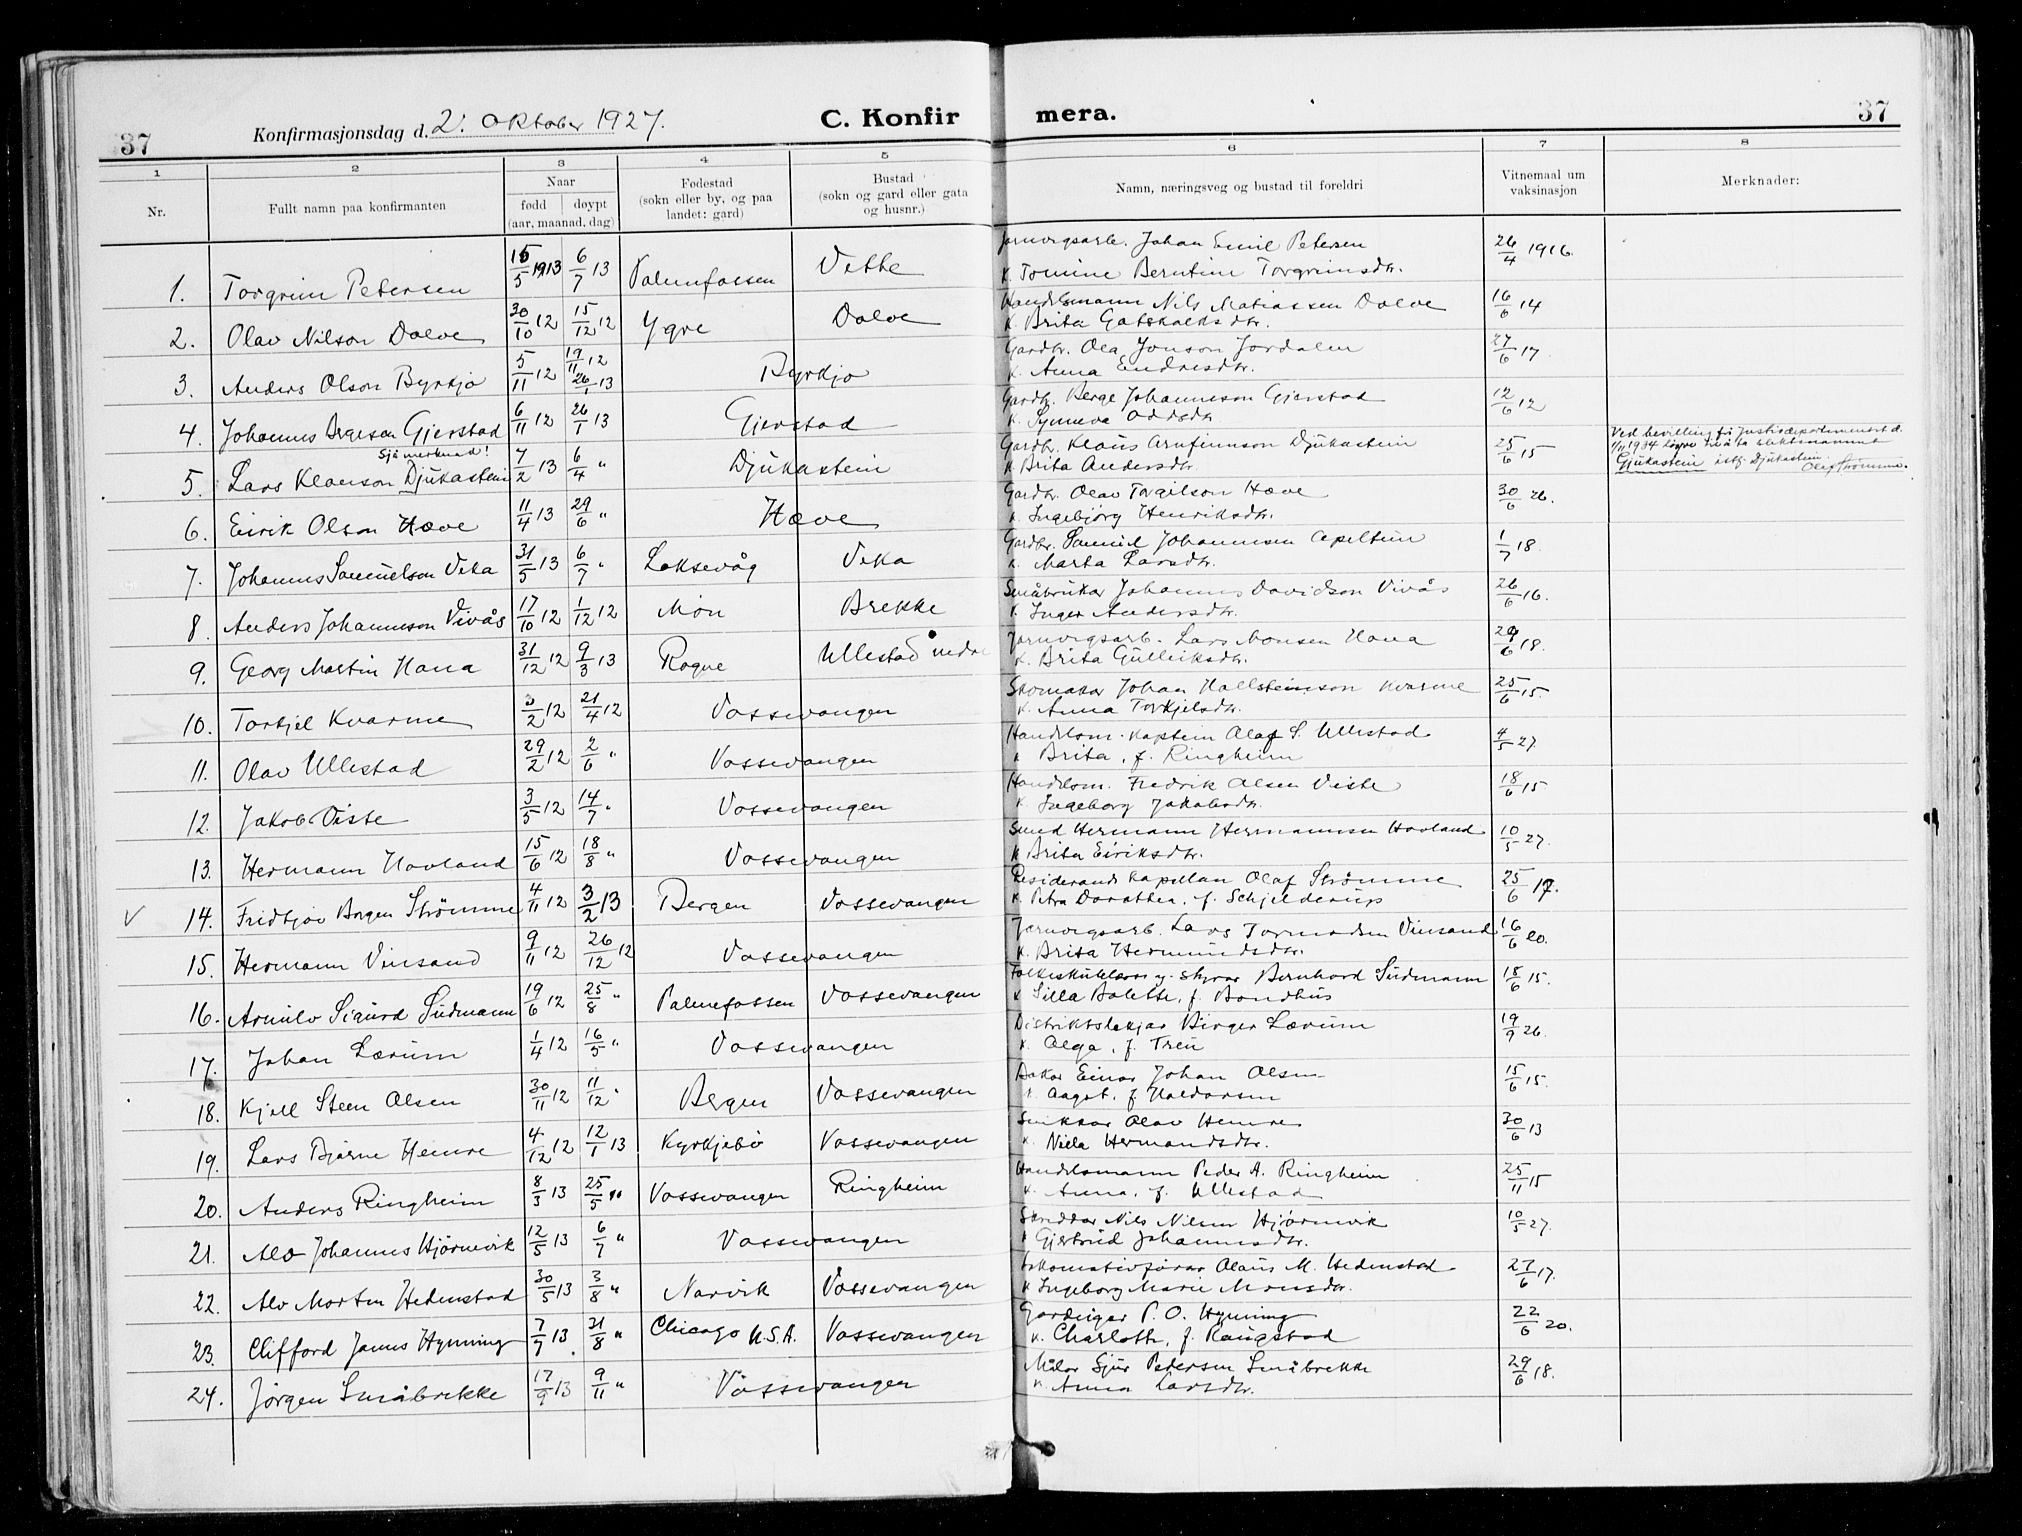 37 Konfirmasjonsdag d. 2. Oktober 1927. C. Konfirmera. 37
1 2 3 4 5 6 7 8
Nr. Fullt namn paa konfirmanten Naar født døypt (aar, maanad, dag) Fødestad (sokn eller by, og paa landet: gard) Bustad (sokn og gard eller gata og husnr.) Namn, næringsveg og bustad til foreldri Vitnemaal um vaksinasjon Merknader:
1. Torgrim Petersen 15/5 1913 6/7 13 Palmefossen Vethe Jarnvegsarb. Johan Emil Petersen 26/4 1916.
k. Tomine Berntine Torgrimsdtr.
2. Olav Nilson Dolve 30/10 12 15/12 12 Ygre Dolve Handelsmann Nils Matiassen Dolve 16/6 14
k. Brita Gotskalksdtr.
3. Anders Olson Byrkjo 5/11 12 19/11 12 26/1 13 Byrkjo Gardbr. Ola Jonson Jordalen 27/6 17.
k. Anna Endresdtr.
4. Johannes Bergeson Gjerstad 6/11 12 26/1 13 Gjerstad Gardbr. Berge Johanneson Gjerstad 12/6 12
k. Synneva Oddsdtr
Sjå merknad!
5. Lars Klauson Djukastein 7/2 13 6/4 " Djukastein Gardbr. Klaus Arnfinnson Djukastein 25/6 15 Ved bevilling frå Justisdepartementet d.
k. Brita Andersdtr. 1/11 1934 løyve til å ta slektsnamnet
Gjukastein istf. Djukastein. Olaf Strømme.
6. Eirik Olson Hæve 11/4 13 29/6 " Hæve Gardbr. Olav Torgilson Hæve 30/6 26.
k. Ingebjørg Henriksdtr.
7. Johannes Samuelson Veka 31/5 13 6/7 " Laksevåg Veka Gardbr. Samuel Johannesen Apeltun 1/7 18.
k. Marta Larsdtr.
8. Anders Johanneson Vivås 17/10 12 1/12 12 Møn Brekke Småbrukar Johannes Davidson Vivås 26/6 16.
k. Inger Andersdtr.
9. Georg Martin Hana 31/12 12 9/3 13 Rogne Ullestad nedre Jarnvegsarb. Lars Monsen Hana 29/6 18.
k. Brita Gulleiksdtr.
10. Torkjel Kvarme 3/2 12 21/4 12 Vossevangen Skomakar Johan Hallsteinson Kvarme 25/6 15.
k. Anna Torkjelsdtr.
11. Olav Ullestad 29/2 12 2/6 " Vossevangen Handelsm. kaptein Olaf S. Ullestad 4/5 27.
k Brita, f. Ringheim
12. Jakob Viste 3/5 12 14/7 " Vossevangen Handelsm. Fredrik Olsen Viste 18/6 15
k. Ingeborg Jakobsdtr.
13. Hermann Hovland 15/6 12 18/8 " Vossevangen Smed Hermann Hermannsen Hovland 10/5 27.
k Brita Eiriksdtr.
V 14. Fridtjov Borgen Strømme 4/11 12 3/2 13 Bergen Vossevangen Residerande kapellan Olaf Strømme 25/6 17.
k. Petra Dorothea, f. Schjelderups
15. Hermann Vinsand 9/11 12 26/12 12 Vossevangen Jarnvegsarb. Lars Tormodsen Vinsand 16/6 20.
k. Brita Hermundsdtr.
16. Arnulv Sigurd Sudmann 19/6 12 25/8 " Palmefossen Vossevangen Folkeskulelærar og styrar Bernhard Sudmann 18/6 15.
k Silla Bolette, f. Bondhus
17. Johan Lærum 1/4 12 16/5 " Vossevangen Distriktslækjar Birger Lærum 19/9 26.
k. Olga, f. Treu
18. Kjell Steen Olsen 30/11 12 11/12 " Bergen Vossevangen Bakar Einar Johan Olsen 15/6 15.
k. Aagot, f Haldorsen
19. Lars Bjarne Hemre 4/12 12 12/1 13 Kyrkjebø Vossevangen Snikkar Olav Hemre 30/6 13
k. Niela Hermandsdtr.
20. Anders Ringheim 8/3 13 25/5 " Vossevangen Ringheim Handelsmann Peder A. Ringheim 25/11 15
k. Anna, f. Ullestad
21. Alv Johannes Hjørnevik 12/5 13 6/7 " Vossevangen Skreddar Nils Nilsen Hjørnevik 10/5 27.
k Gjertrud Johannesdtr.
22. Alv Morten Hedenstad 30/5 13 3/8 " Narvik Vossevangen Lokomotivførar Olaus M. Hedenstad 27/6 17.
k Ingeborg Marie Monsdtr.
23. Clifford James Hynning 7/7 13. 31/8 " Chicago U.S.A. Vossevangen Gardeigar P. O. Hynning 22/6 20.
k. Charlotte, f. Raugstad
24. Jørgen Småbrekke 17/9 13 9/11 " Vossevangen Målar Sjur Pedersen Småbrekke 29/6 18.
k Anna Larsdtr.